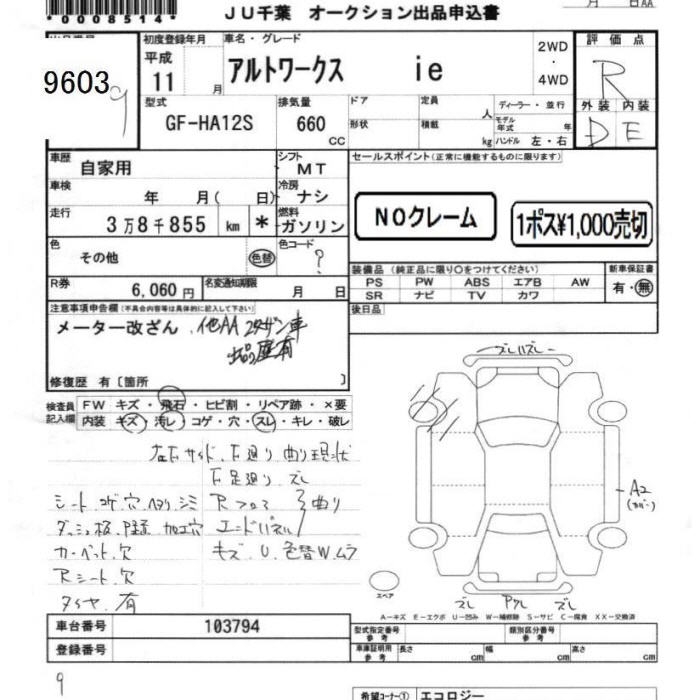 *0008514*
JU千葉 オークション出品申込書
月 日AA
出品番号
9603
初度登録年月
平成
11 月
車名・グレード
アルトワークス ie
2WD
・
4WD
評価点
R
外装 内装
D E
型式
GF-HA12S
排気量
660
CC
ドア
形状
定員
人
積載
kg
ディーラー・並行
モデル年式 年
ハンドル 左・右
車歴
自家用
シフト
MT
セールスポイント(正常に機能するものに限ります)
車検
年 月( 日)
冷房
ナシ
NOクレーム
1ポス¥1,000売切
走行
3万8千855 km *
燃料
ガソリン
色
その他
色替
色コード
?
装備品 (純正品に限り〇をつけてください)
PS PW ABS エアB AW
SR ナビ TV カワ
新車保証書
有・無
R券
6,060円
名変通知期限
月 日
後日品
注意事項申告欄(不具合内容等は具体的に記入して下さい)
メーター改ざん
出品歴有
修復歴 有〔箇所 〕
検査員記入欄
FW キズ・飛石・ヒビ割・リペア跡・×要
内装 キズ・汚レ・コゲ・穴・スレ・キレ・破レ
ズレ
シート.コゲ.穴.ヘタリ.シミ
曲り
加工穴
エンドパネル
カーペット.穴
キズ.U.色替W.ムラ
Rシート.穴
タイヤ.有
A2
(カバー)
スペア
ズレ
ズレ
A-キズ E-エクボ U-凹み W-補修跡 S-サビ C-腐食 XX-交換済
車台番号 103794
型式指定番号
参考
類別区分番号
参考
登録番号
車庫証明用
参考
長さ cm
幅 cm
高さ cm
9
希望コーナー① エコロジー